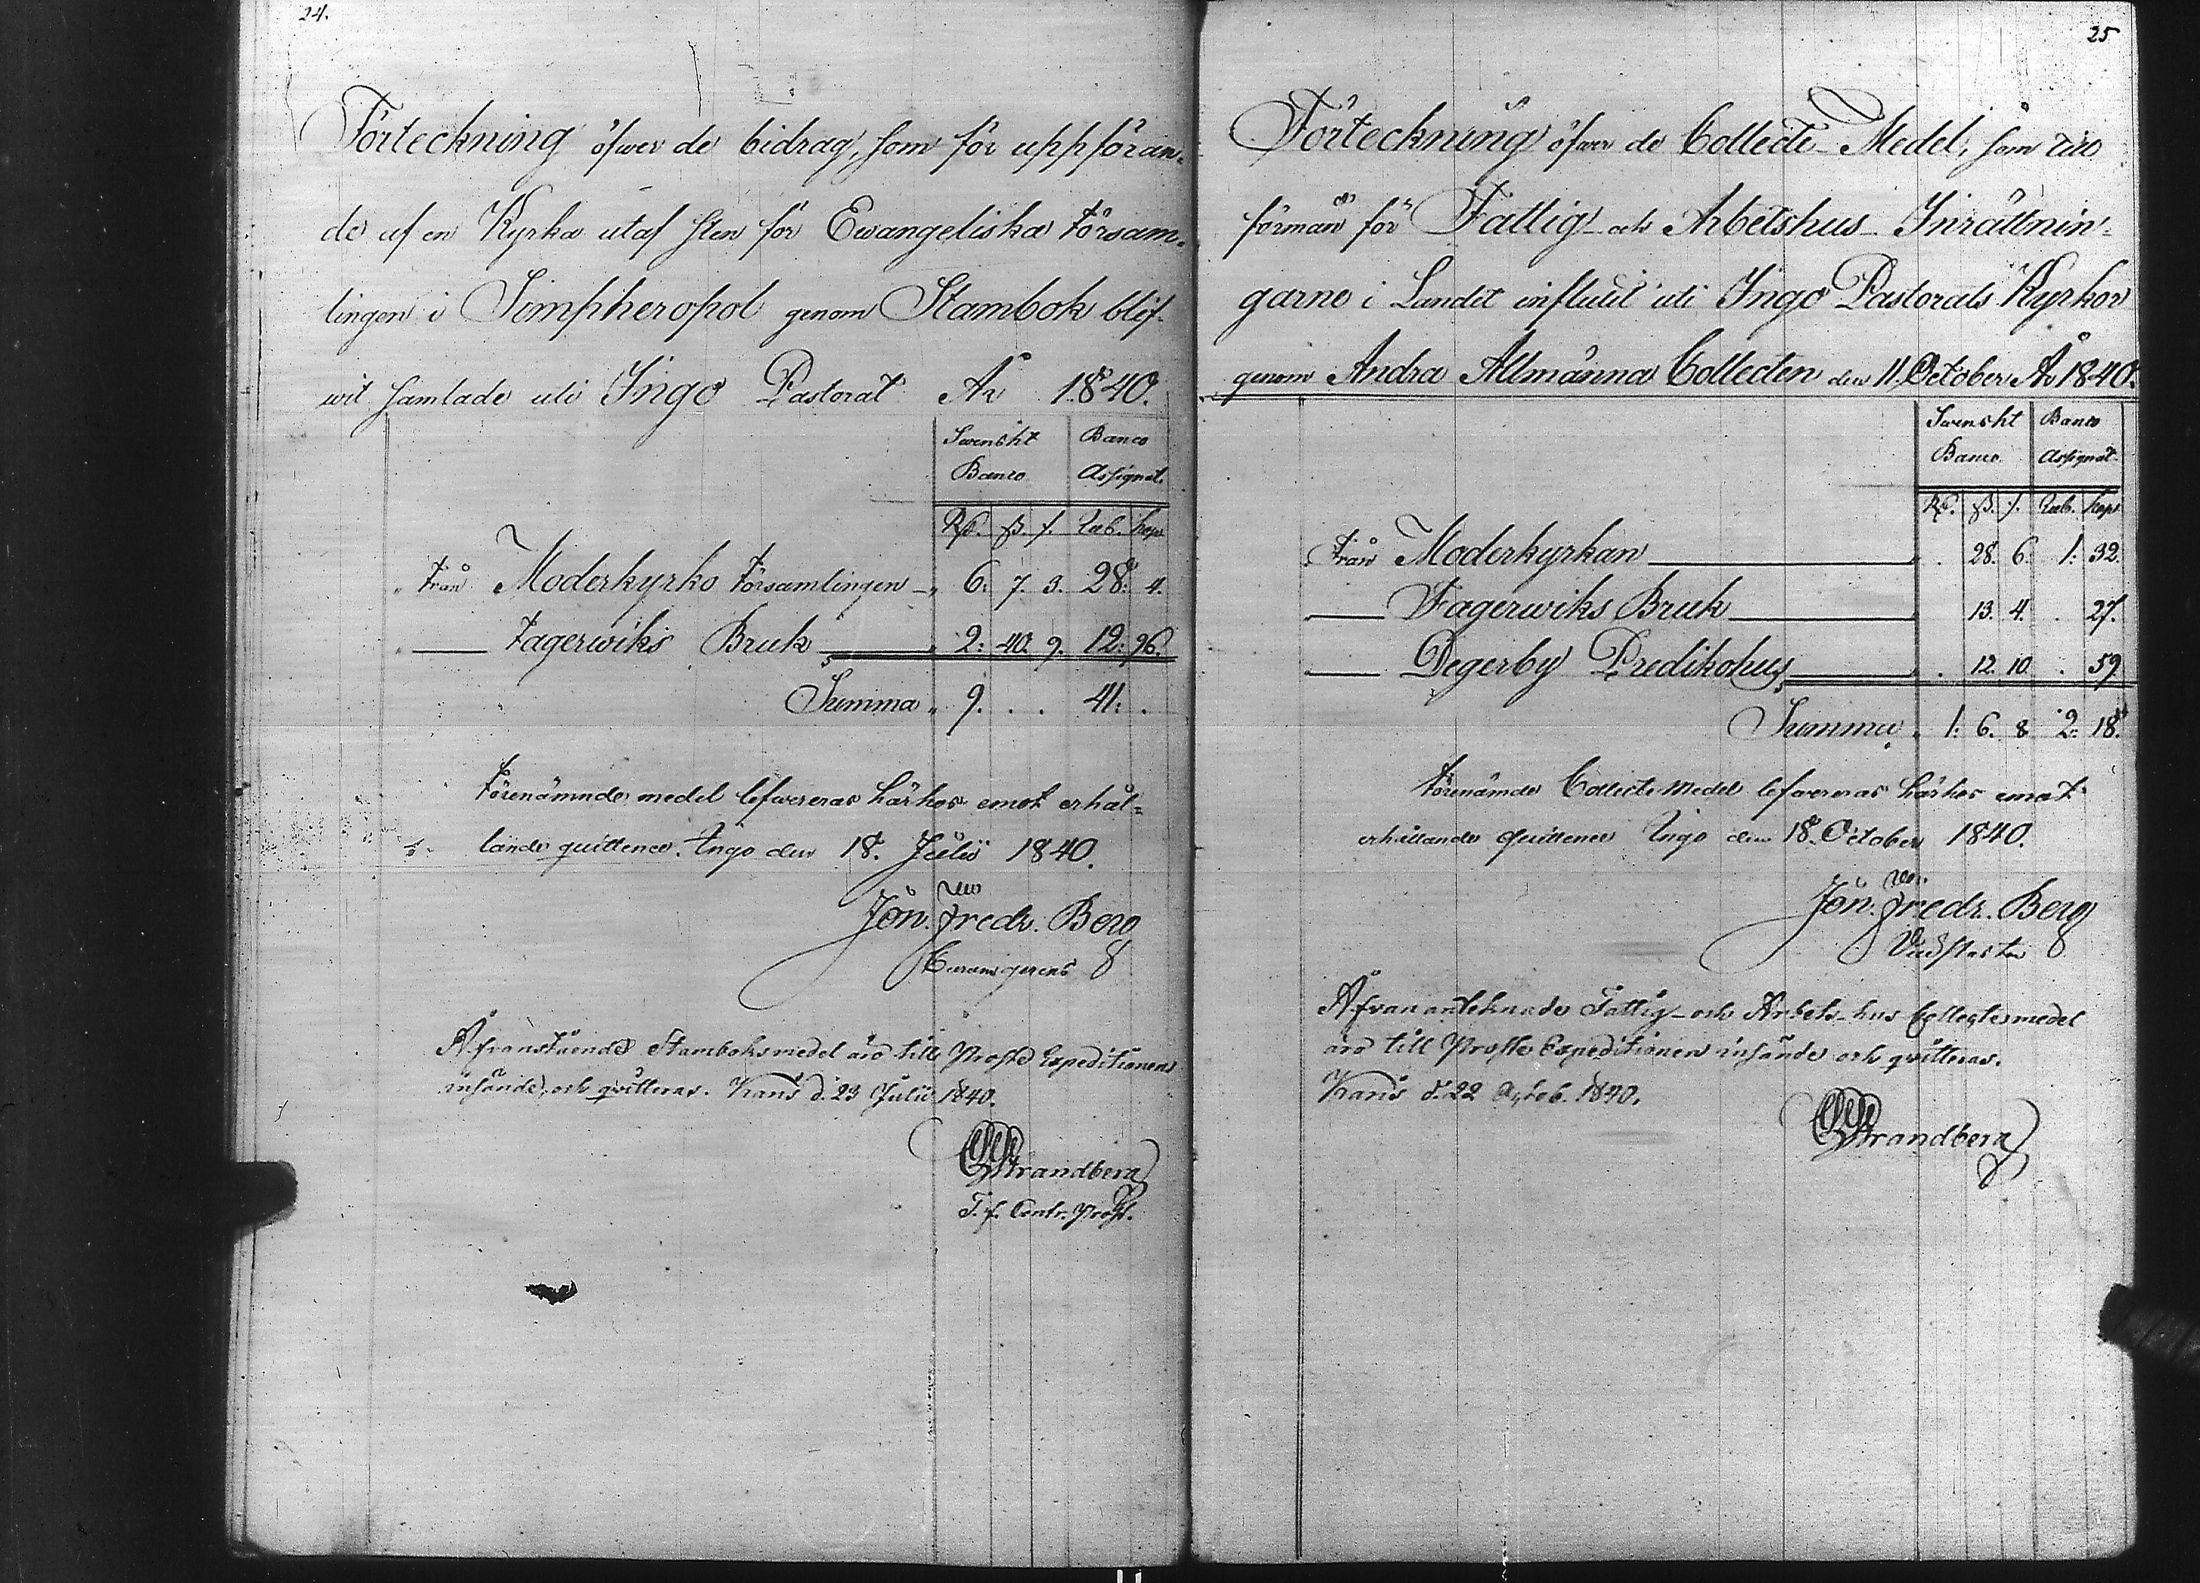 24.
Förteckning öfwer de bidrag, som för uppföran-
de af en Kyrka utaf sten för Ewangeliska Försam-
lingen i Simpheropol genom Stambok blif-
wit samlade uti Ingo Pastorat År 1840.
Swenskt Banco
Banco Assignat.
Rd. ß. r. Rub. kop
" Från Moderkyrko Församlingen " 6: 7. 3. 28: 4.
" Fagerwiks Bruk " 2: 40. 9. 12: 96.
Summa " 9. . . 41: .
Förenämnde medel lefwereras härhos emot erhål-
lande quittence. Ingo den 18. Julii 1840.
Jon. Fredr. Berg
Curam gerens
Åfvanstående Stamboksmedel äro till Proste Expeditionen
insände, och qvitteras. Karis d. 23 Julii 1840.
Strandberg
T. f. Contr. Prost.
25
Förteckning öfwer de Collect-Medel, som till
förmån för Fattig- och Arbetshus- Inrättnin-
garne i Landet influtit uti Ingo Pastorats Kyrkor
genom Andra Allmänna Collecten den 11 October År 1840.
Swenskt Banco
Banco Assignat.
Rd. ß. r. Rub. kop
Från Moderkyrkan " . 28. 6. 1: 32.
Fagerwiks Bruk 13. 4. . 27.
Degerby Predikohus " . 12. 10 . 59
Summa " 1: 6. 8 2: 18.
Förenämde Collecte Medel lefwereras härhos emot
erhållande quittence Ingo den 18. October 1840.
Jon. Fredr. Berg
Vice Pastor
Åfvanantecknade Fattig- och Arbets-hus Collectemedel
äro till Proste Expeditionen insände och qvitteras.
Karis d. 22 Octob. 1840.
Strandberg